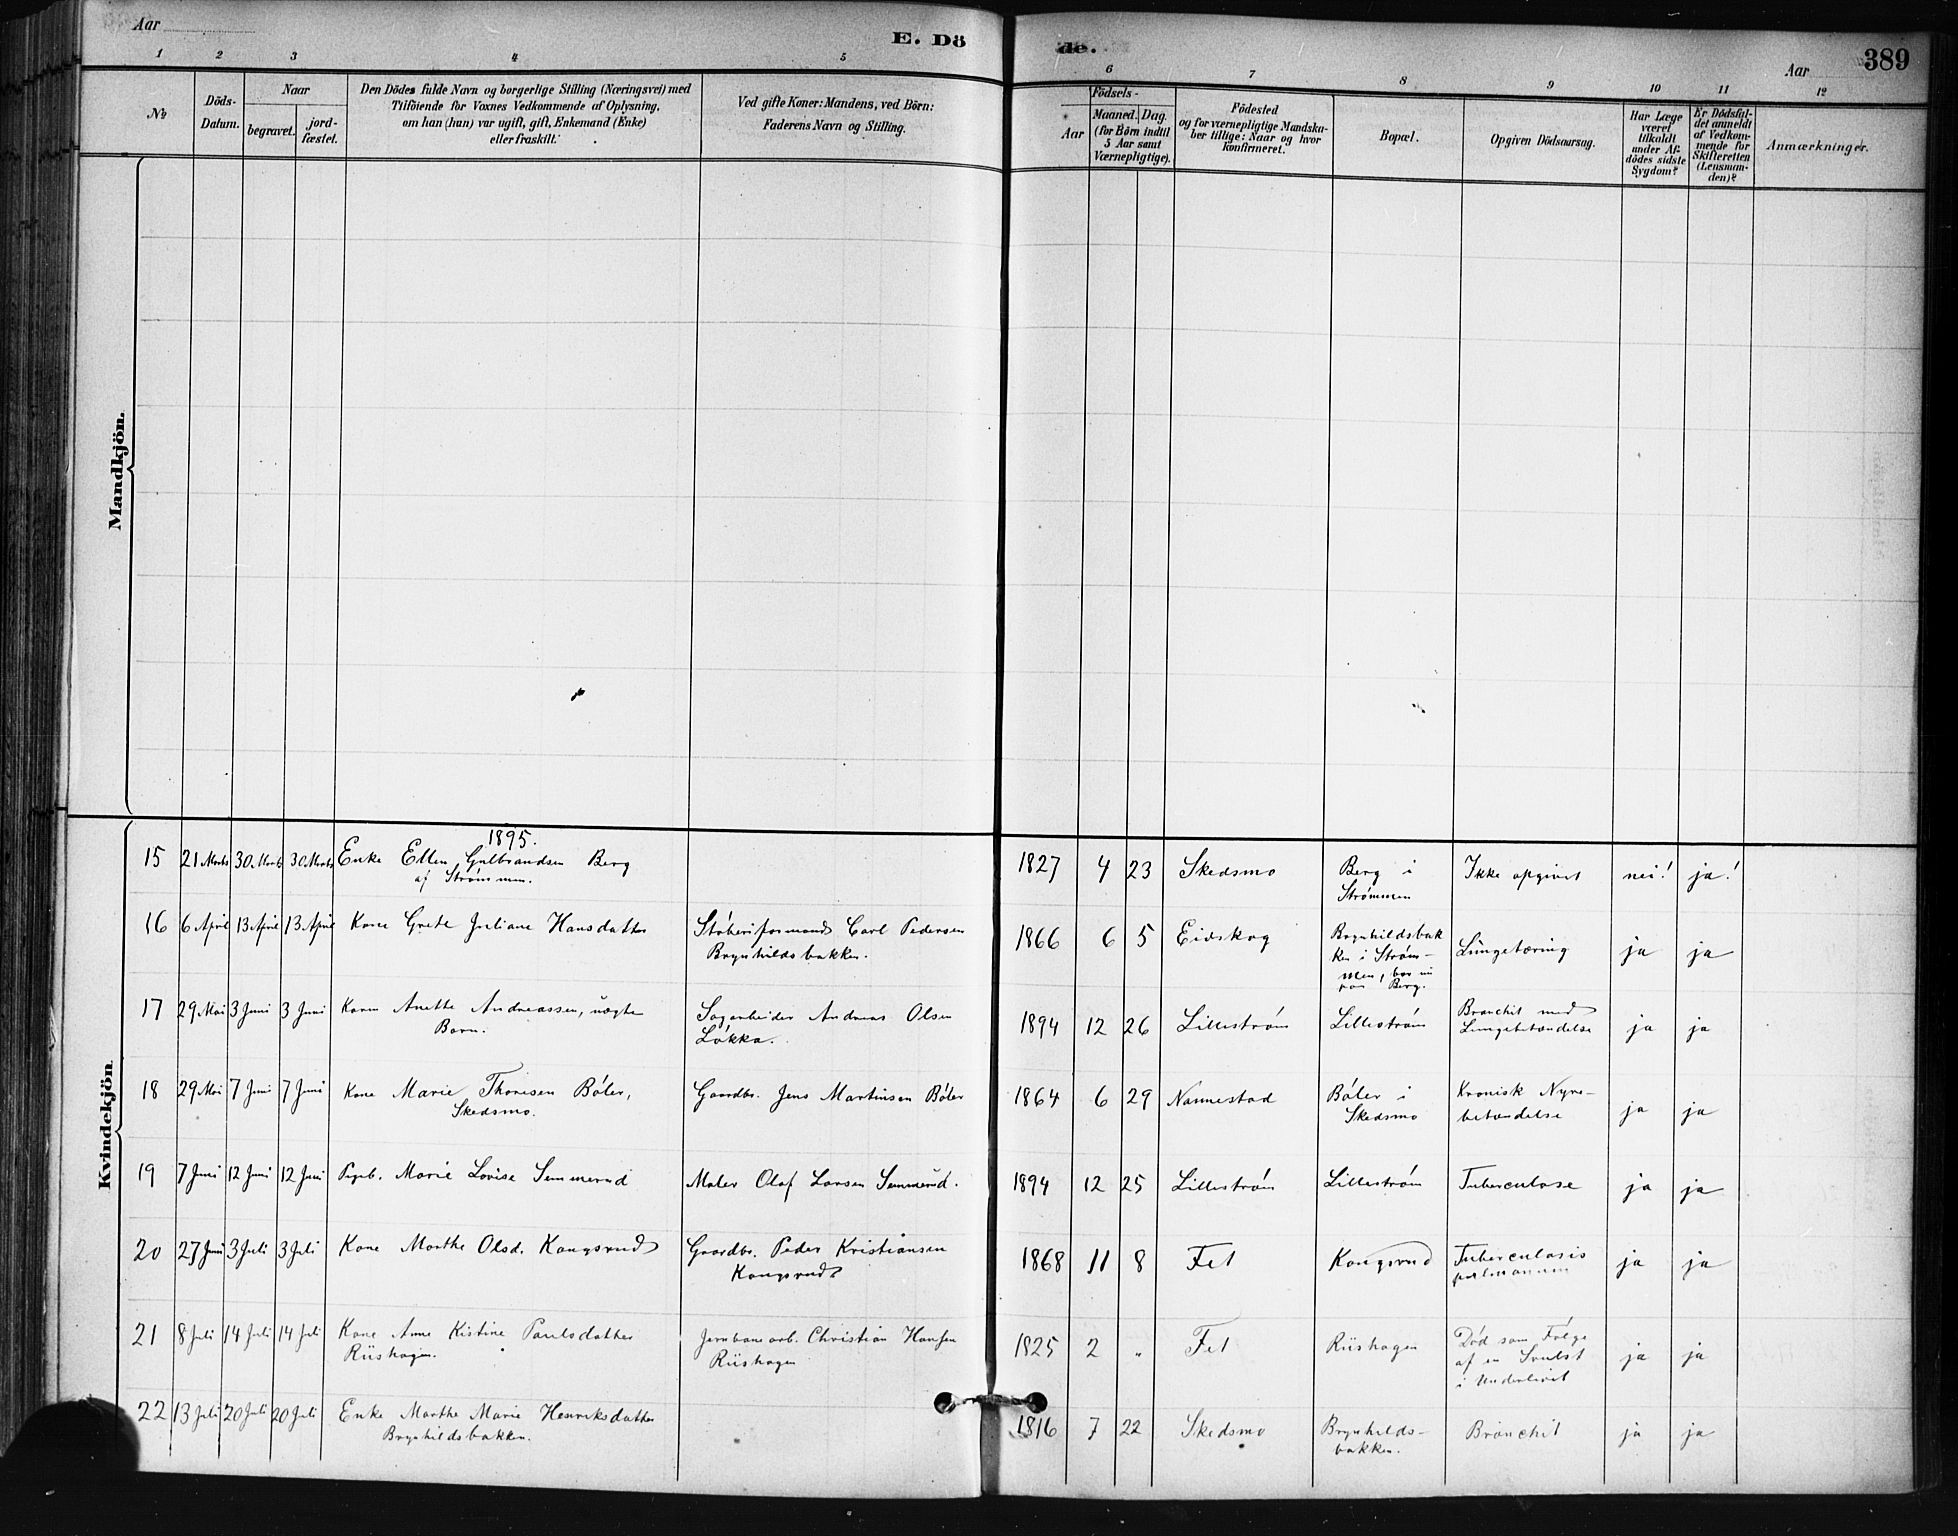 Aar
E. Dö
de.
Aar
389
1 2 3 4 5 6 7 8 9 10 11 12
№
Döds-
Datum.
Naar
begravet.
jord-
fæstet.
Den Dödes fulde Navn og borgerlige Stilling (Næringsvei) med
Tilföiende for Voxnes Vedkommende af Oplysning,
om han (hun) var ugift, gift, Enkemand (Enke)
eller fraskilt.
Ved gifte Koner: Mandens, ved Börn:
Faderens Navn og Stilling.
Födsels-
Aar
Maaned. Dag.
(for Börn indtil
5 Aar samt
Værnepligtige).
Födested
og for værnepligtige Mandska-
ber tillige: Naar og hvor
konfirmeret.
Bopæl.
Opgiven Dödsaarsag.
Har Læge
været
tilkaldt
under Af-
dödes sidste
Sygdom?
Er Dödsfal-
det anmeldt
af Vedkom-
mende for
Skifteretten
(Lensman-
den)?
Anmærkninger.
Mandkjön.
Kvindekjön
1895.
15 21 Marts 30 Marts 30 Marts Enke Ellen Gulbrandsen Berg
af Strømmen.
1827 4 23 Skedsmo Berg i
Strømmen
Ikke opgivet nei! ja!
16 6 April 13 April 13 April Kone Grete Juliane Hansdatter
Støberiformand Carl Pedersen
Brynhildsbakken.
1866 6 5 Eidskog Brynhildsbak
ken i Strøm-
men, bor nu
paa Berg.
Lungetæring ja ja
17 29 Mai 3 Juni 3 Juni Karen Anette Andreassen, uægte
Barn.
Sagarbeider Andreas Olsen
Løkka.
1894 12 26 Lillestrøm Lillestrøm Bronchit med
Lungebetændelse ja ja
18 29 Mai 7 Juni 7 Juni Kone Marie Thoresen Bøler,
Skedsmo.
Gaardbr. Jens Martinsen Bøler
1864 6 29 Nannestad Bøler i
Skedsmo
Kronisk Nyre-
betændelse ja ja
19 7 Juni 12 Juni 12 Juni Pigeb. Marie Lovise Semmerud
Maler Olaf Larsen Semmerud.
1894 12 25 Lillestrøm Lillestrøm Tuberculose ja ja
20 27 Juni 3 Juli 3 Juli Kone Marthe Olsd. Kongsrud
Gaardbr. Peder Kristiansen
Kongsrud
1868 11 8 Fet Kongsrud Tuberculosis
pulmonum ja ja
21 8 Juli 14 Juli 14 Juli Kone Anne Kistine Paulsdatter
Riishagen.
Jernbanearb. Christian Hansen
Riishagen
1825 2 „ Fet Riishagen Død som Følge
af en Svulst
i Underlivet ja ja
22 13 Juli 20 Juli 20 Juli Enke Marthe Marie Henriksdatter
Brynhildsbakken.
1816 7 22 Skedsmo Brynhilds-
bakken.
Bronchit ja ja